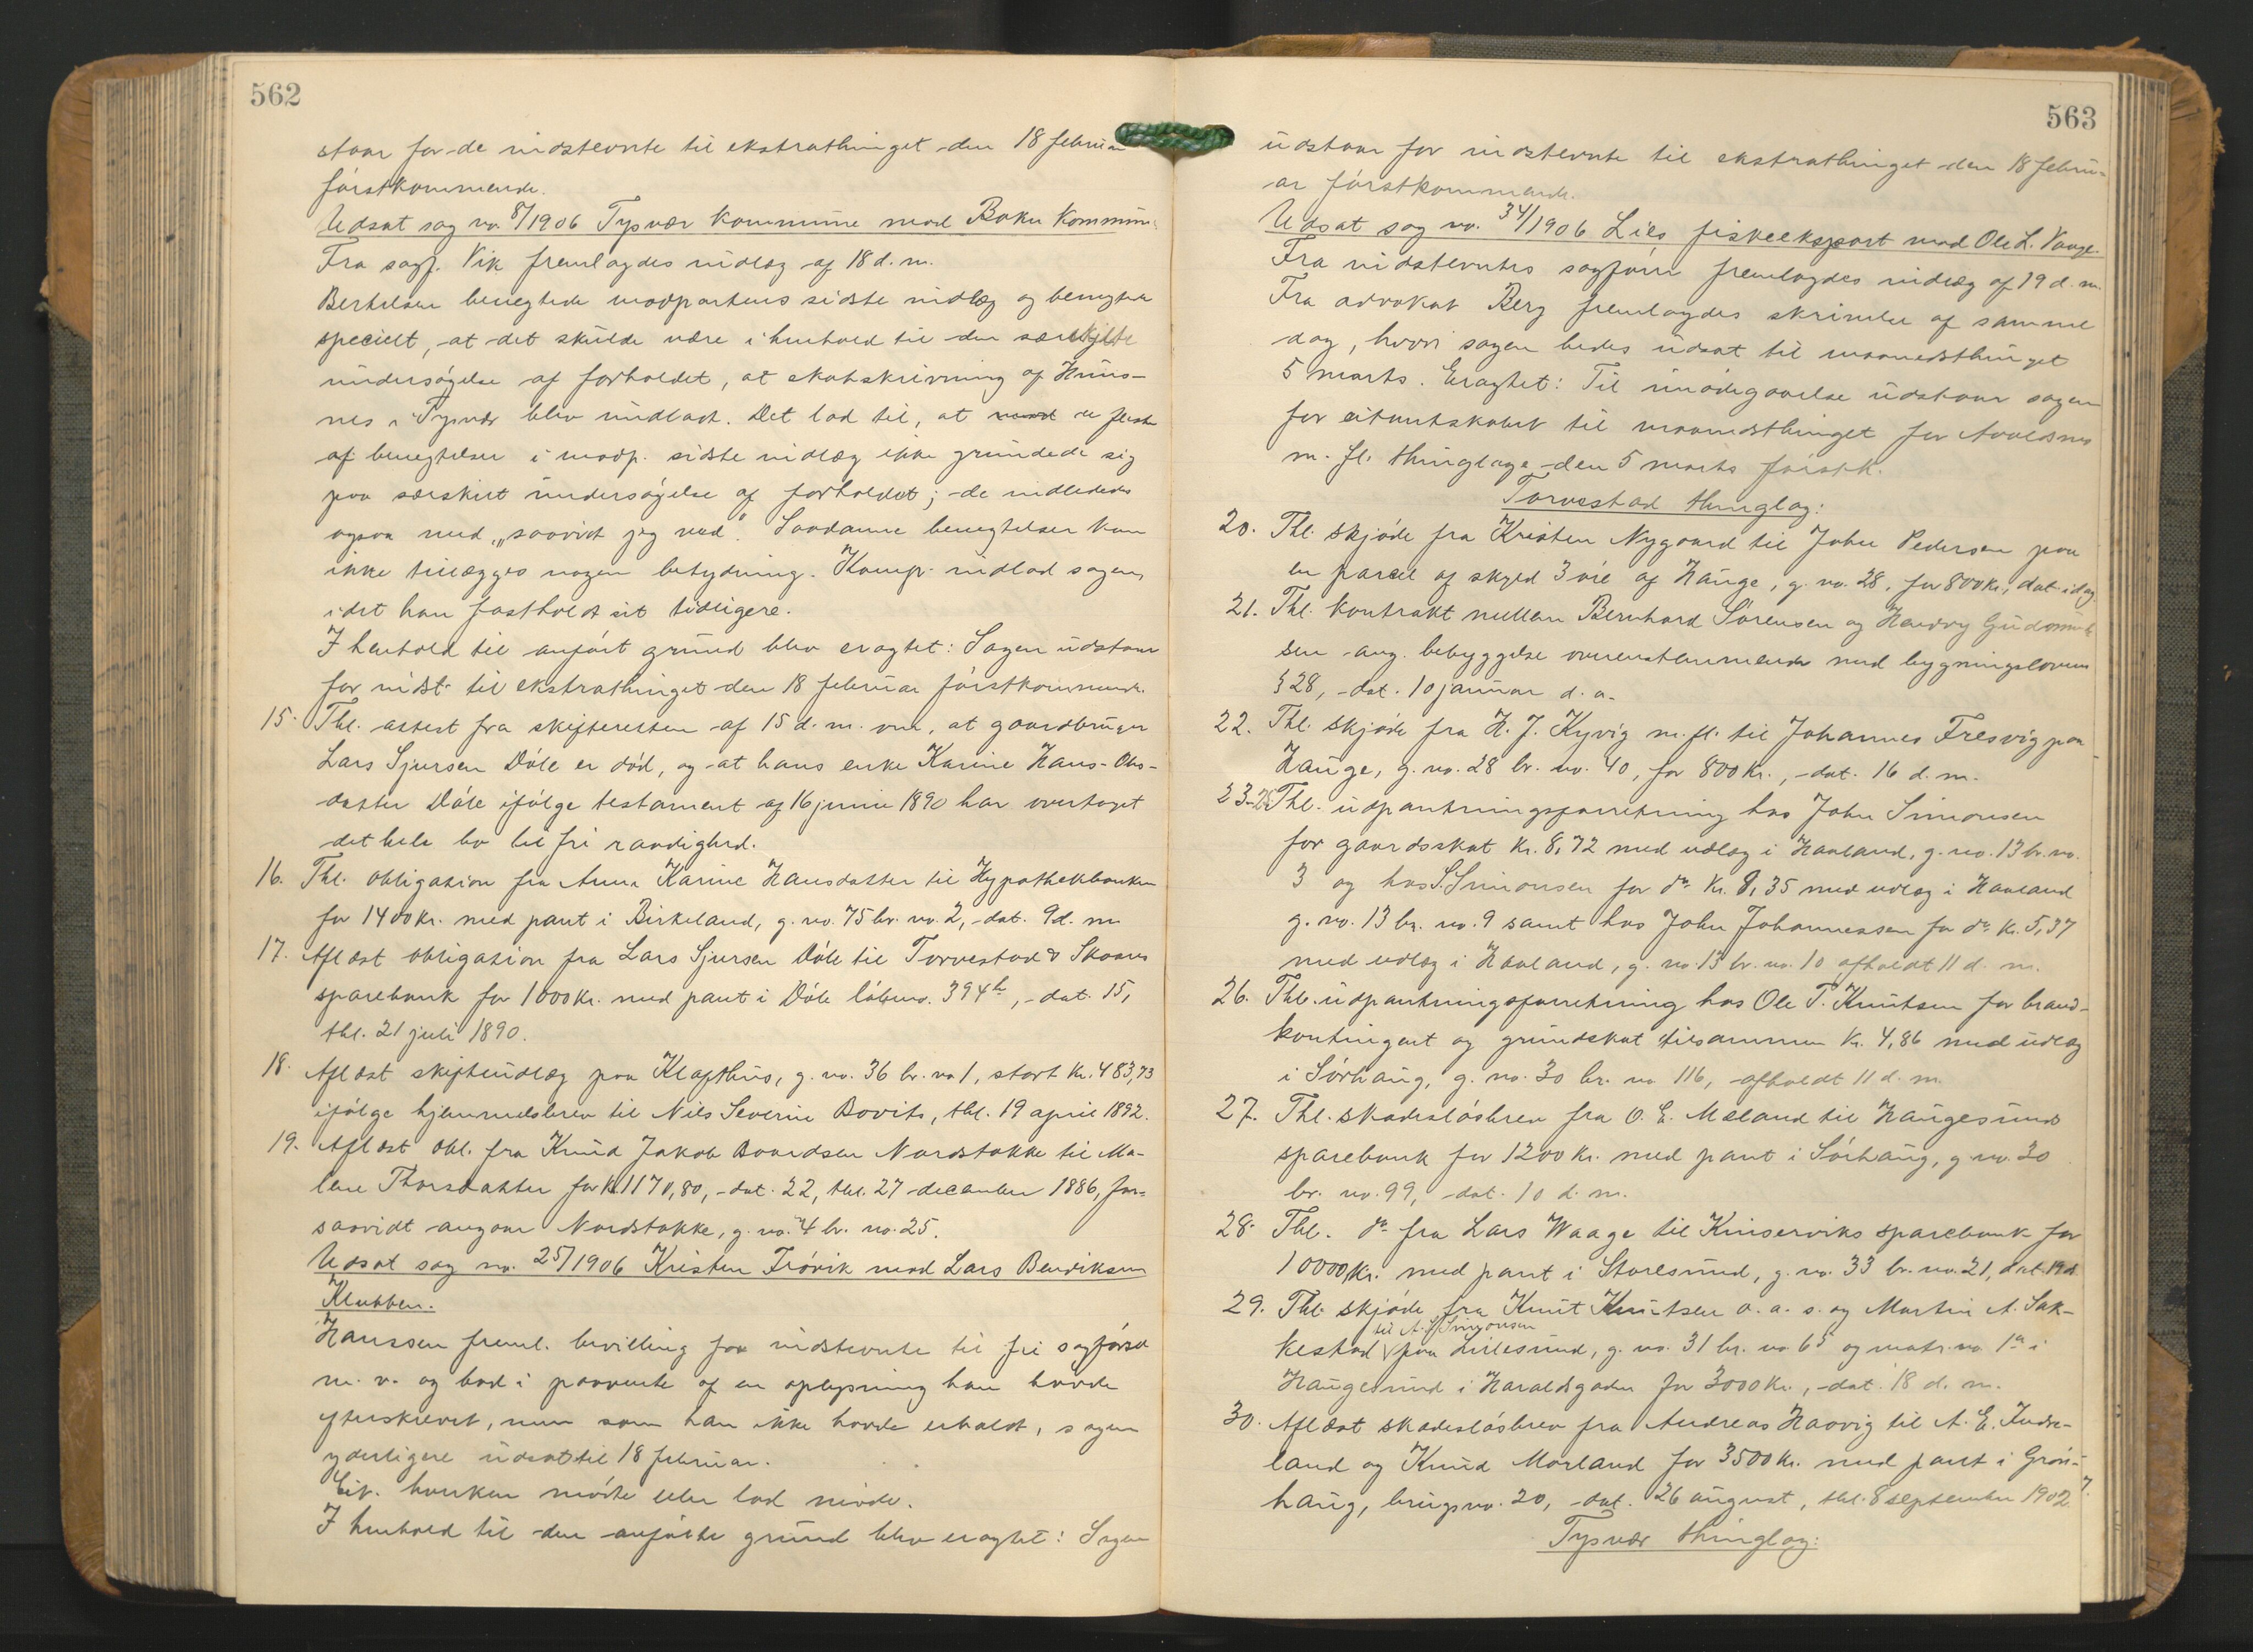 562
staar for de indstevnte til ekstrathinget den 18 februar
førstkommende.
Udsat sag no. 8/1906 Tysvær kommune mod Bokn kommune
Fra sagf. Vik fremlagdes indlæg af 18 d. m.
Bertelsen benegtede modpartens sidste indlæg og benegted
specielt, at det skulde være i henhold til den særskilte
undersøgelse af forholdet, at skatskrivning af Huns-
nes i Tysvær blev undladt. Det lod til, at de fleste
af benegtelser i modp. sidste indlæg ikke grundede sig
paa særskilt undersøgelse af forholdet; de indlededes
ogsaa med „saavidt jeg ved". Saadanne benegtelser kan
ikke tillægges nogen betydning. Komp. indlod sagen,
idet han fastholdt sit tidligere.
I henhold til anført grund blev eragtet: Sagen udstaar
for indst. til ekstrathinget den 18 februar førstkommende.
15. Thl. attest fra skifteretten af 15 d. m. om, at gaardbruger
Lars Sjursen Døle er død, og at hans enke Karine Hans-Ols-
datter Døle ifølge testament af 16 juni 1890 har overtaget
det hele bo til fri raadighed.
16. Thl. obligation fra Anna Karine Hansdatter til Hypothekbanken
for 1400 kr. med pant i Birkeland, g. no. 75 br. no. 2, dat. 9 d. m.
17. Aflæst obligation fra Lars Sjursen Døle til Torvestad & Skaare
sparebank for 1000 kr. med pant i Døle løbeno. 394 b, dat. 15,
thl. 21 juli 1890.
18. Aflæst skifteudlæg paa Klapthus, g. no. 36 br. no 1, stort kr. 483,73
ifølge hjemmelsbrev til Nils Severin Bovits, thl. 19 april 1892.
19. Aflæst obl. fra Knud Jakob Baardsen Nordstokke til Ma-
lene Thorsdatter for kr. 1170,80, dat. 22, thl. 27 december 1886, for-
saavidt angaar Nordstokke, g. no. 4 br. no. 25.
Udsat sag no. 25/1906 Kristen Frøvik mod Lars Bendiksen
Klubben.
Hanssen freml. bevilling for indstevnte til fri sagførsel
m. v. og bad i paavente af en oplysning han havde
efterskrevet, men som han ikke havde erholdt, sagen
yderligere udsat til 18 februar.
Cit. hverken mødte eller lod møde.
I henhold til den anførte grund blev eragtet: Sagen
563
udstaar for indstevnte til ekstrathinget den 18 febru-
ar førstkommende.
Udsat sag no. 34/1906 Lies fiskeeksport mod Ole L. Vaage.
Fra indstevntes sagfører fremlagdes indlæg af 19 d. m.
Fra advokat Berg fremlagdes skrivelse af samme
dag, hvori sagen bedes udsat til maanedsthinget
5 marts. Eragtet: Til imødegaaelse udstaar sagen
for citantskabet til maanedsthinget for Avaldsnes
m. fl. thinglage den 5 marts førstk.
Torvestad thinglag:
20. Thl. skjøde fra Kristen Nygaard til John Pedersen paa
en parcel af skyld 3 øre af Hauge, g. no. 28, for 800 kr., dat. idag.
21. Thl. kontrakt mellem Bernhard Sørensen og Hendry Gudmund-
sen ang. bebyggelse overenstemmende med bygningslovens
§ 28, dat. 10 januar d. a.
22. Thl. skjøde fra H. J. Kyvig m. fl. til Johannes Fresvig paa
Hauge, g. no. 28 br. no. 40, for 800 kr., dat. 16 d. m.
23-25 Thl. udpantningsforretning hos John Simonsen
for gaardsskat kr. 8,72 med udlæg i Haaland, g. no. 13 br. no.
3 og hos S. Simonsen for do kr. 8,35 med udlæg i Haaland
g. no. 13 br. no. 9 samt hos John Johannessen for do kr. 5,37
med udlæg i Haaland, g. no. 13 br. no. 10 afholdt 11 d. m.
26. Thl. udpantningsforretning hos Ole T. Knutsen for brand-
kontingent og grundskat tilsammen kr. 4,86 med udlæg
i Sørhaug, g. no. 30 br. no 116, afholdt 11 d. m.
27. Thl. skadesløsbrev fra O. E. Mæland til Haugesunds
sparebank for 1200 kr. med pant i Sørhaug, g. no. 30
br. no. 99, dat. 10 d. m.
28. Thl. do fra Lars Waage til Kinserviks sparebank for
10000 kr. med pant i Storesund, g. no. 33 br. no. 21, dat. 19 d.
29. Thl. skjøde fra Knut Knutsen o. a. s. og Martin A. Sak-
til A. S. Simonsen
kestad paa Lillesund, g. no. 31 br. no. 65 og matr. no 1a i
Haugesund i Haraldsgaden for 3000 kr., dat. 18 d. m.
30. Aflæst skadesløsbrev fra Andreas Haavig til A. E. Indre-
land og Knud Morland for 3500 kr. med pant i Grøn-
haug, brugsno. 20, dat. 26 august, thl. 8 september 1902.
Tysvær thinglag: